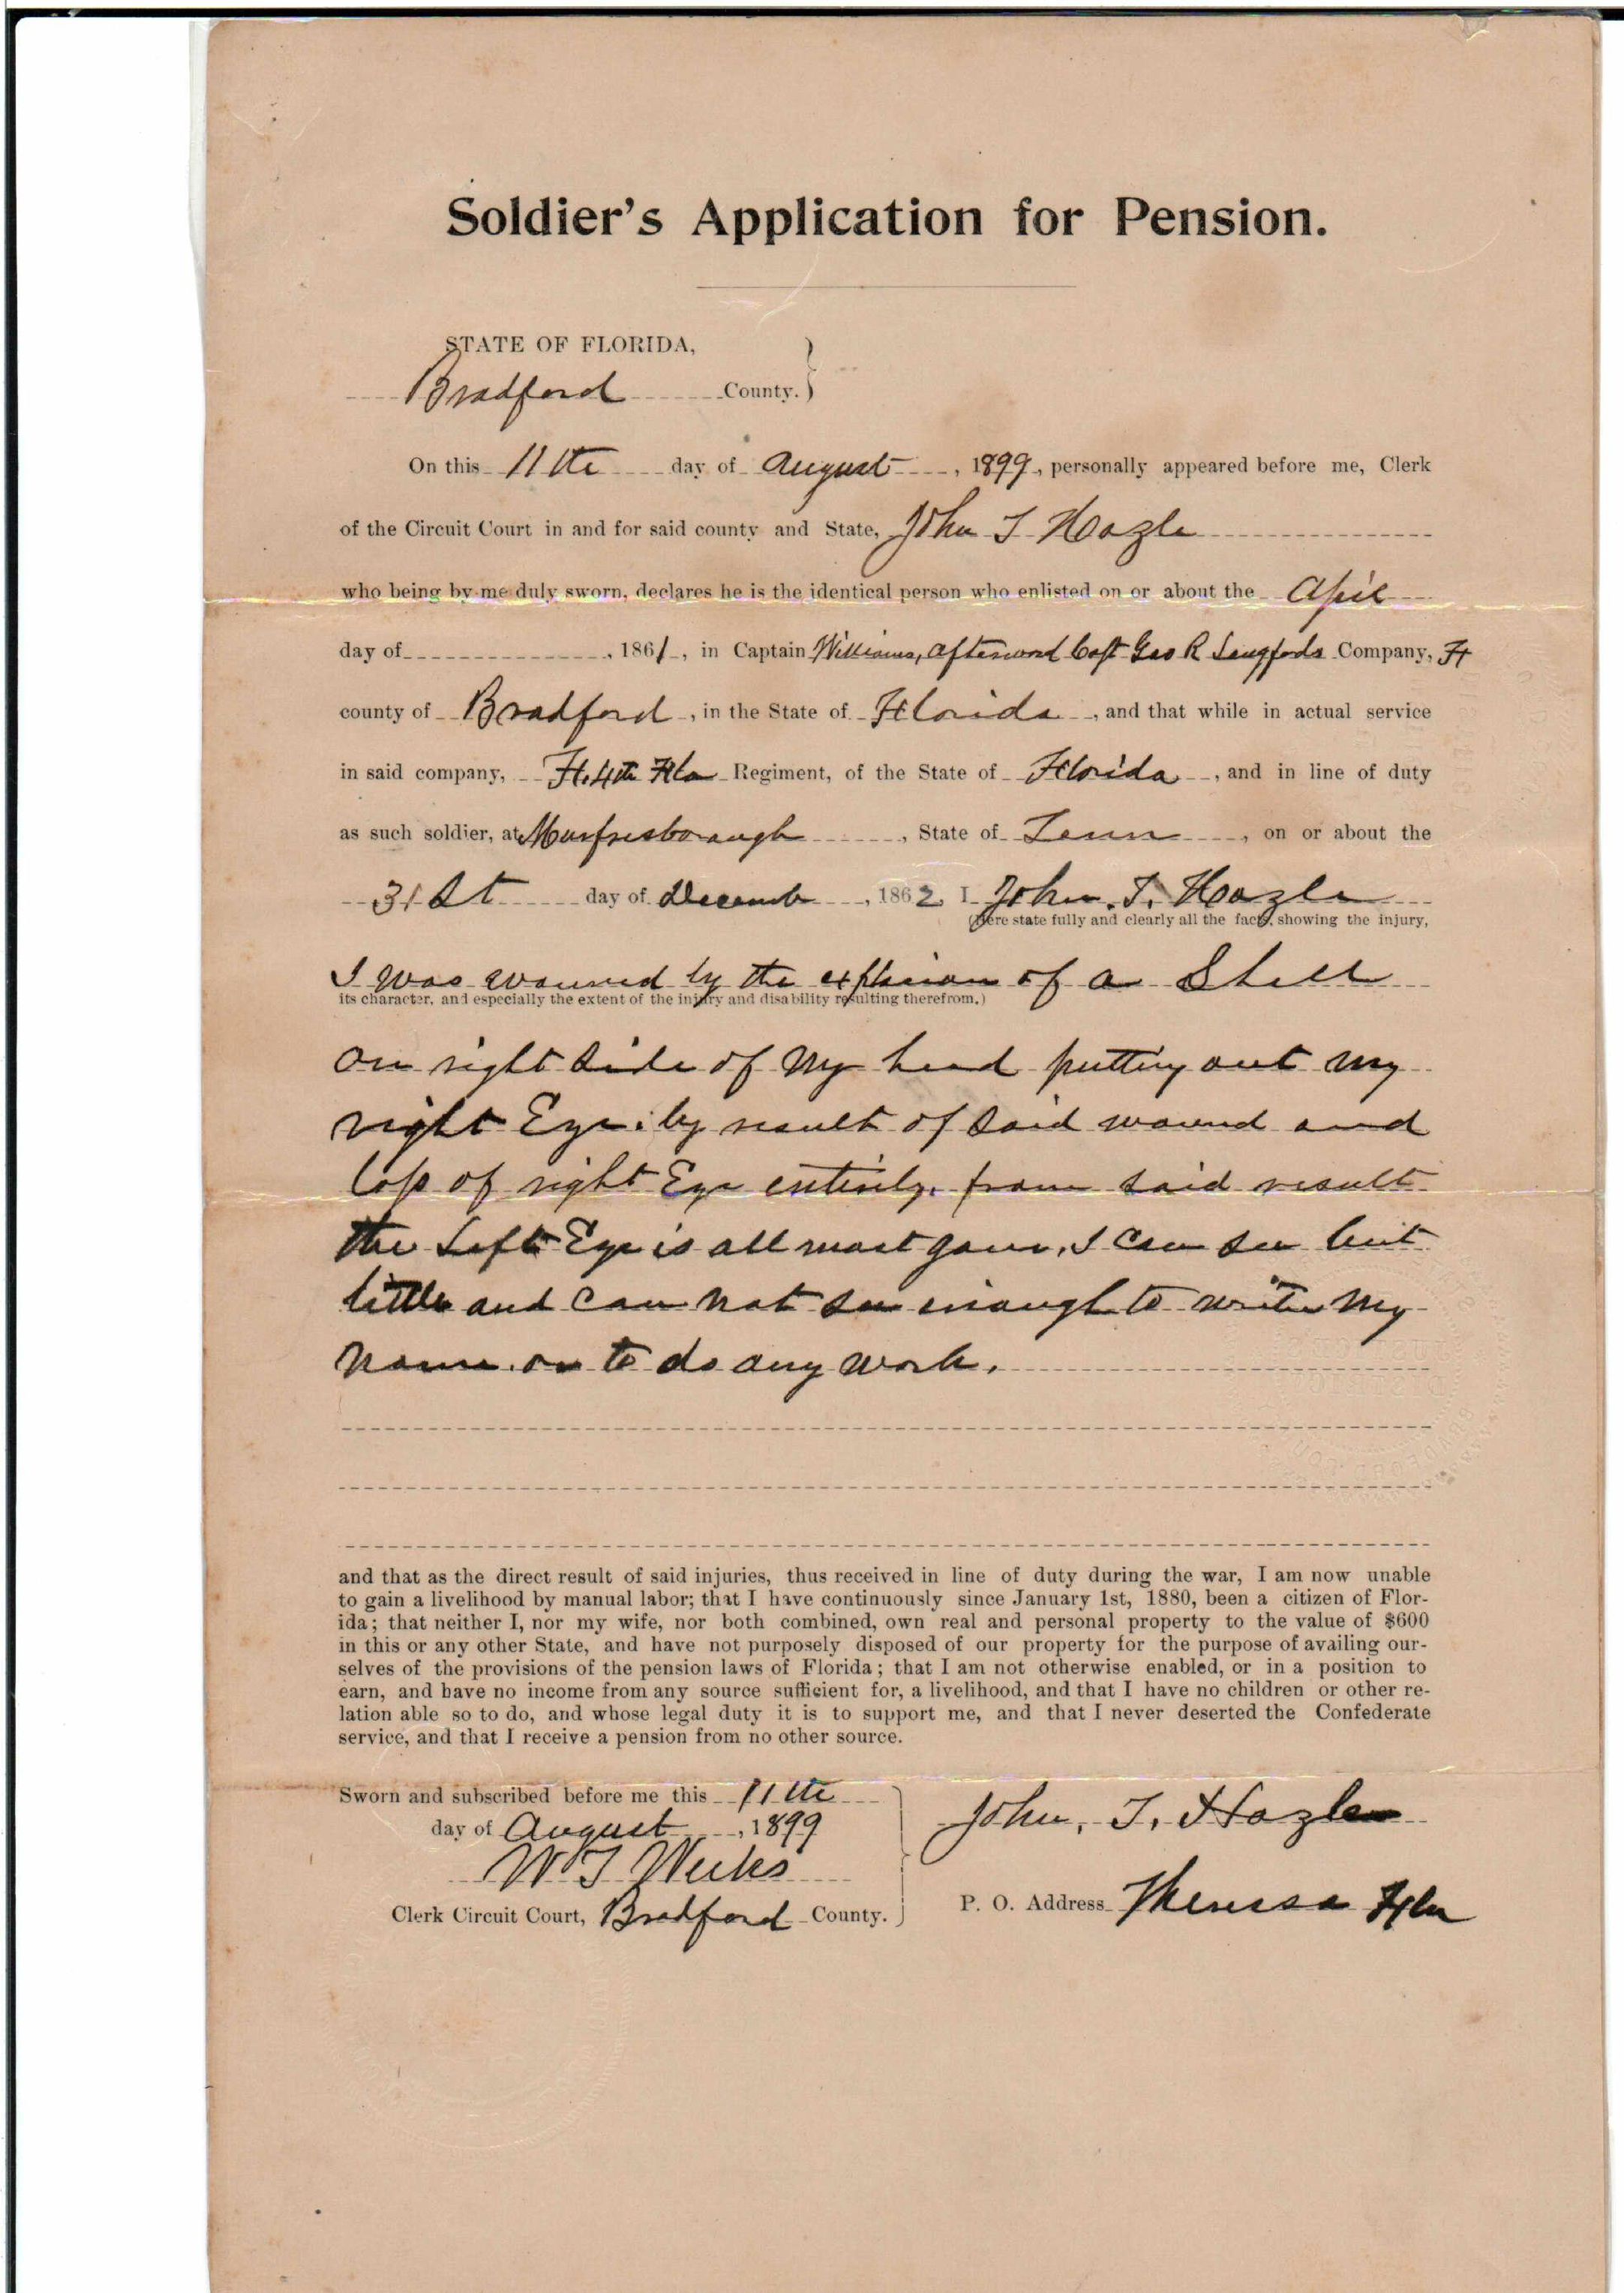 Soldier's Application for Pension.
STATE OF FLORIDA,
Bradford County.
On this 11th day of August, 1899, personally appeared before me, Clerk
of the Circuit Court in and for said county and State, John T Hazle
who being by me duly sworn, declares he is the identical person who enlisted on or about the April
day of , 1861, in Captain Williams, afterward Capt Geo R Langfords Company, F
county of Bradford, in the State of Florida, and that while in actual service
in said company, F. 4th Fla Regiment, of the State of Florida, and in line of duty
as such soldier, at Murfresborough, State of Tenn, on or about the
31st day of Decemb, 1862 I John. T. Hazle
(Here state fully and clearly all the facts, showing the injury,
I was wouned by the explsion of a Shell
its character, and especially the extent of the injury and disability resulting therefrom.)
on right side of my head putting out my
right Eye. by result of said wound and
loss of right Eye entirely. from said result
the Left Eye is all most gone, I can see but
little and can not see enough to write my
name. or to do any work.
and that as the direct result of said injuries, thus received in line of duty during the war, I am now unable
to gain a livelihood by manual labor; that I have continuously since January 1st, 1880, been a citizen of Flor-
ida; that neither I, nor my wife, nor both combined, own real and personal property to the value of $600
in this or any other State, and have not purposely disposed of our property for the purpose of availing our-
selves of the provisions of the pension laws of Florida; that I am not otherwise enabled, or in a position to
earn, and have no income from any source sufficient for, a livelihood, and that I have no children or other re-
lation able so to do, and whose legal duty it is to support me, and that I never deserted the Confederate
service, and that I receive a pension from no other source.
Sworn and subscribed before me this 11th
day of August, 1899
W T Weeks
Clerk Circuit Court, Bradford County.
John. T. Hazle
P. O. Address Theressa Fla